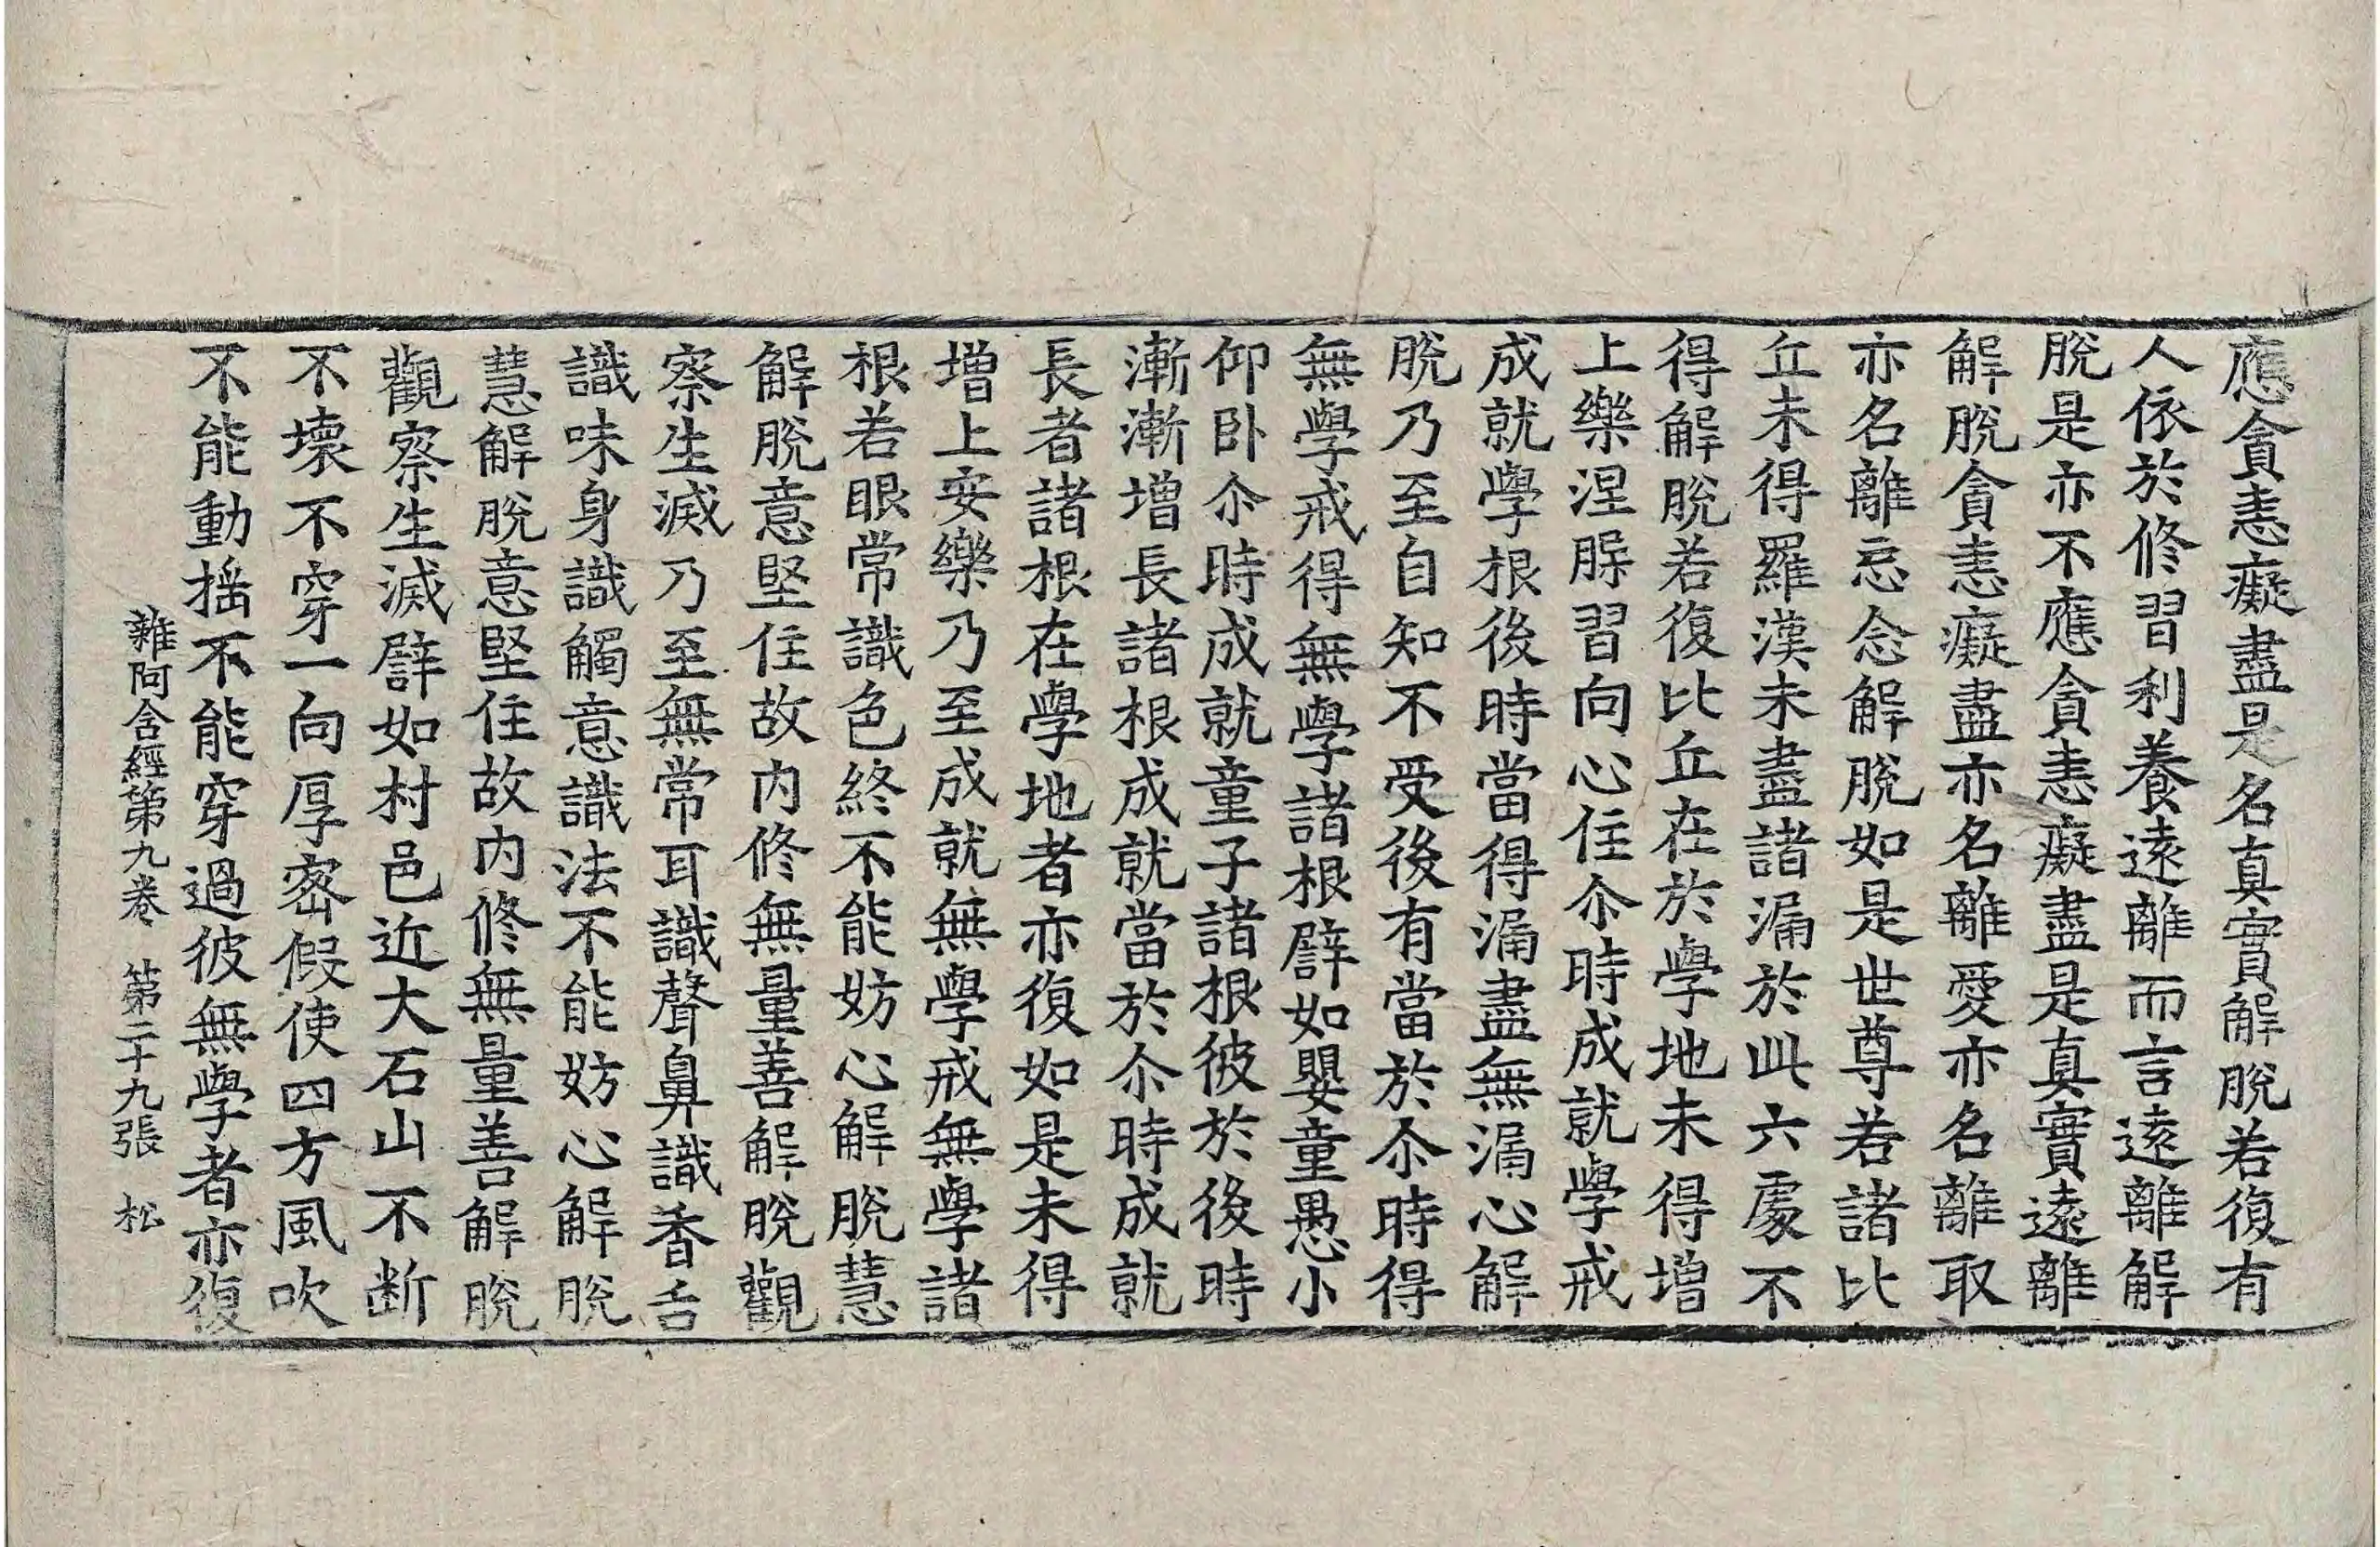 應貪恚癡盡是名真實解脫若復有
人依於修習利養遠離而言遠離解
脫是亦不應貪恚癡盡是真實遠離
解脫貪恚癡盡亦名離愛亦名離取
亦名離忘念解脫如是世尊若諸比
丘未得羅漢未盡諸漏於此六處不
得解脫若復比丘在於學地未得增
上樂涅脲習向心住尒時成就學戒
成就學根後時當得漏盡無漏心解
脫乃至自知不受後有當於尒時得
無學戒得無學諸根譬如嬰童愚小
仰卧尒時成就童子諸根彼於後時
漸漸增長諸根成就當於尒時成就
長者諸根在學地者亦復如是未得
增上安樂乃至成就無學戒無學諸
根若眼常識色終不能妨心解脫慧
解脫意堅住故內修無量善解脫觀
察生滅乃至無常耳識聲鼻識香舌
識味身識觸意識法不能妨心解脫
慧解脫意堅住故內修無量善解脫
觀察生滅譬如村邑近大石山不断
不壞不穿一向厚密假使四方風吹
不能動搖不能穿過彼無學者亦復
雜阿含經第九卷 第二十九張 松